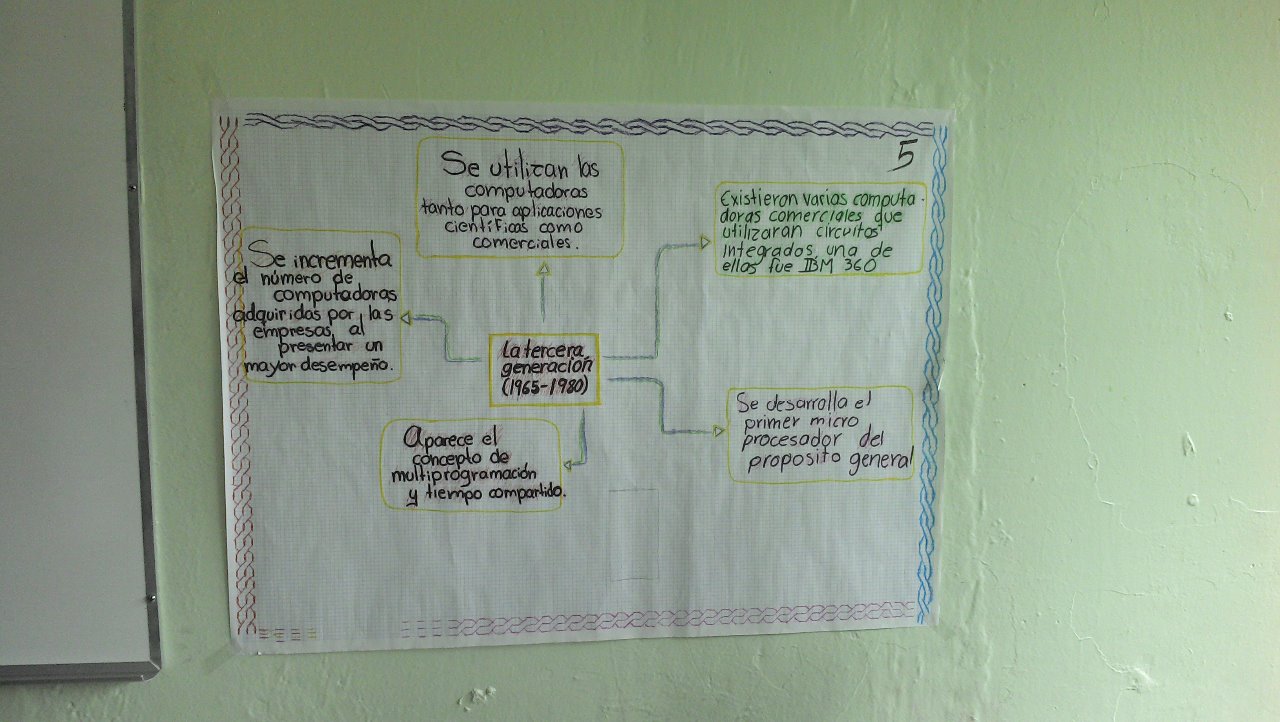 5
Se utilizan las
computadoras
tanto para aplicaciones
científicas como
comerciales.
Existieron varias computa-
doras comerciales que
utilizaran circuitos
integrados una de
ellas fue IBM 360
Se incrementa
el número de
computadoras
adquiridas por las
empresas, al
presentar un
mayor desempeño.
La tercera
generación
(1965-1980)
Se desarrolla el
primer micro
procesador del
proposito general
Aparece el
concepto de
multiprogramación
y tiempo compartido.